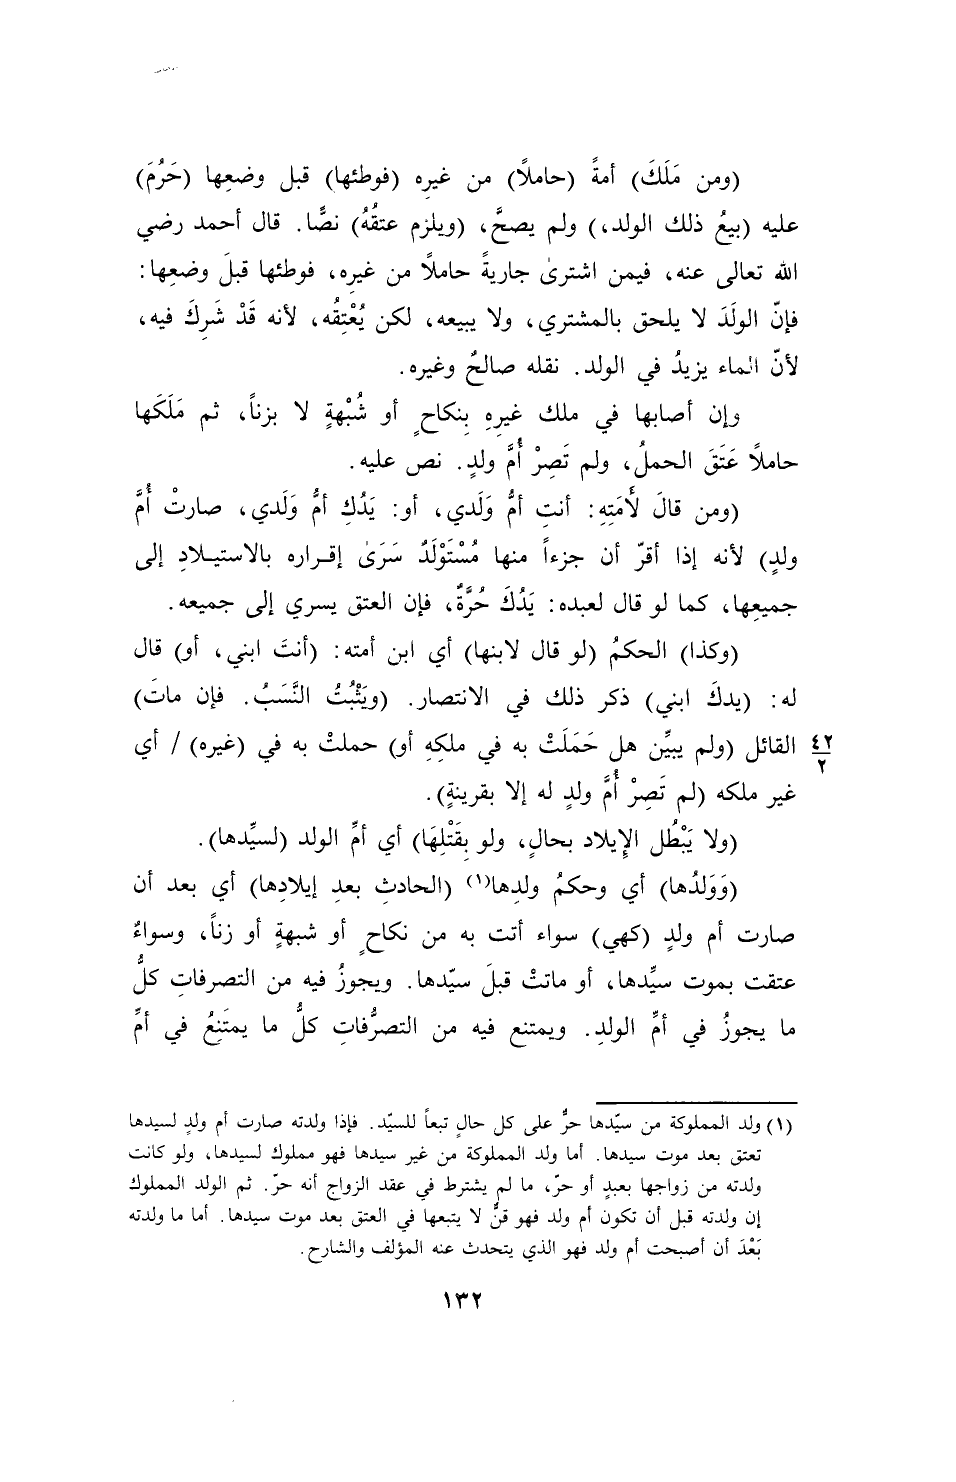 (ومن مَلَكَ) أمةً (حاملًا) من غيرِه (فوطئها) قبل وضعِها (حَرُمَ)
عليه (بيعُ ذلك الولد،) ولم يصحَّ، (ويلزم عتقُهُ) نصًّا. قال أحمد رضي
الله تعالى عنه، فيمن اشترىٰ جاريةً حاملًا من غيرِه، فوطئها قبلَ وضعِها:
فإنّ الولَدَ لا يلحق بالمشتري، ولا يبيعه، لكن يُعْتِقُه، لأنه قَدْ شَرِكَ فيه،
لأنّ الماء يزيدُ في الولد. نقله صالحٌ وغيره.
وإن أصابها في ملك غيرِهِ بِنكاحٍ أو شُبْهةٍ لا بزناً، ثم مَلَكَها
حاملًا عَتَقَ الحملُ، ولم تَصِرْ أُمَّ ولدٍ. نص عليه.
(ومن قالَ لأَمَتِهِ: أنتِ أمُّ وَلَدي، أو: يَدُكِ أمُّ وَلَدي، صارتْ أُمَّ
ولدٍ) لأنه إذا أقرّ أن جزءاً منها مُسْتَوْلَدٌ سَرَىٰ إقـراره بالاستيـلادِ إلى
جميعِها، كما لو قال لعبده: يَدُكَ حُرَّةٌ، فإن العتق يسري إلى جميعه.
(وكذا) الحكمُ (لو قال لابنها) أي ابن أمته: (أنتَ ابني، أو) قال
له: (يدكَ ابني) ذكر ذلك في الانتصار. (ويَثْبُتُ النَّسَبُ. فإن ماتَ)
القائل (ولم يبيِّن هل حَمَلَتْ به في ملكِهِ أو) حملتْ به في (غيره) / أي
٤٢
٢
غير ملكه (لم تَصِرْ أُمَّ ولدٍ له إلا بقرينةٍ).
(ولا يَبْطُل الإيلاد بحالٍ، ولو بِقَتْلِهَا) أي أمِّ الولد (لسيِّدها).
(وَوَلدُها) أي وحكمُ ولدِها(١) (الحادثِ بعدِ إيلادِها) أي بعد أن
صارت أم ولدٍ (كهي) سواء أتت به من نكاحٍ أو شبهةٍ أو زناً، وسواءٌ
عتقت بموت سيِّدها، أو ماتتْ قبلَ سيّدها. ويجوزُ فيه من التصرفاتِ كلُّ
ما يجوزُ في أمِّ الولدِ. ويمتنع فيه من التصرُّفاتِ كلُّ ما يمتَنِعُ في أمِّ
(١) ولد المملوكة من سيّدها حرٌّ على كل حالٍ تبعاً للسيّد. فإذا ولدته صارت أم ولدٍ لسيدها
تعتق بعد موت سيدها. أما ولد المملوكة من غير سيدها فهو مملوك لسيدها، ولو كانت
ولدته من زواجها بعبدٍ أو حرّ، ما لم يشترط في عقد الزواج أنه حرّ. ثم الولد المملوك
إن ولدته قبل أن تكون أم ولد فهو قنٌّ لا يتبعها في العتق بعد موت سيدها. أما ما ولدته
بَعْدَ أن أصبحت أم ولد فهو الذي يتحدث عنه المؤلف والشارح.
١٣٢